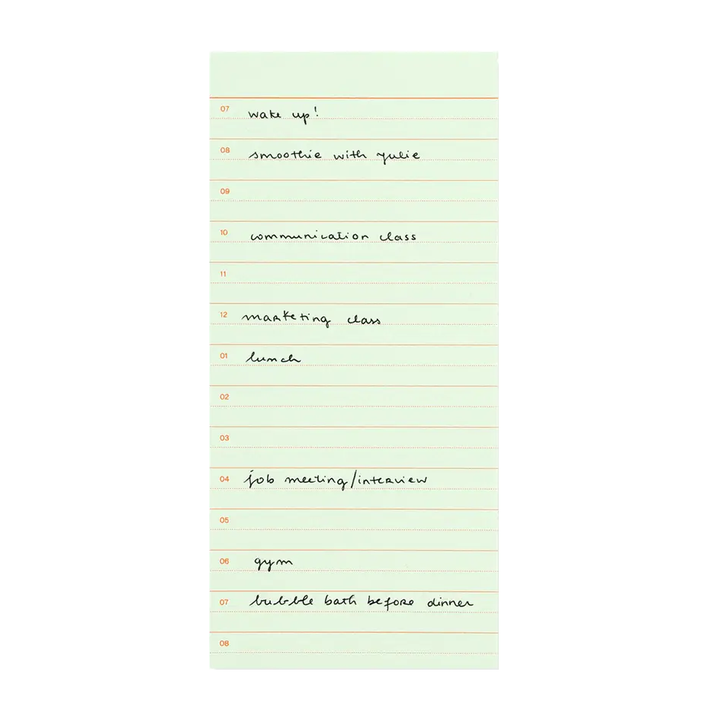 07 wake up!
08 smoothie with Julie
09
10 communication class
11
12 marketing class
01 lunch
02
03
04 job meeting/interview
05
06 gym
07 bubble bath before dinner
08